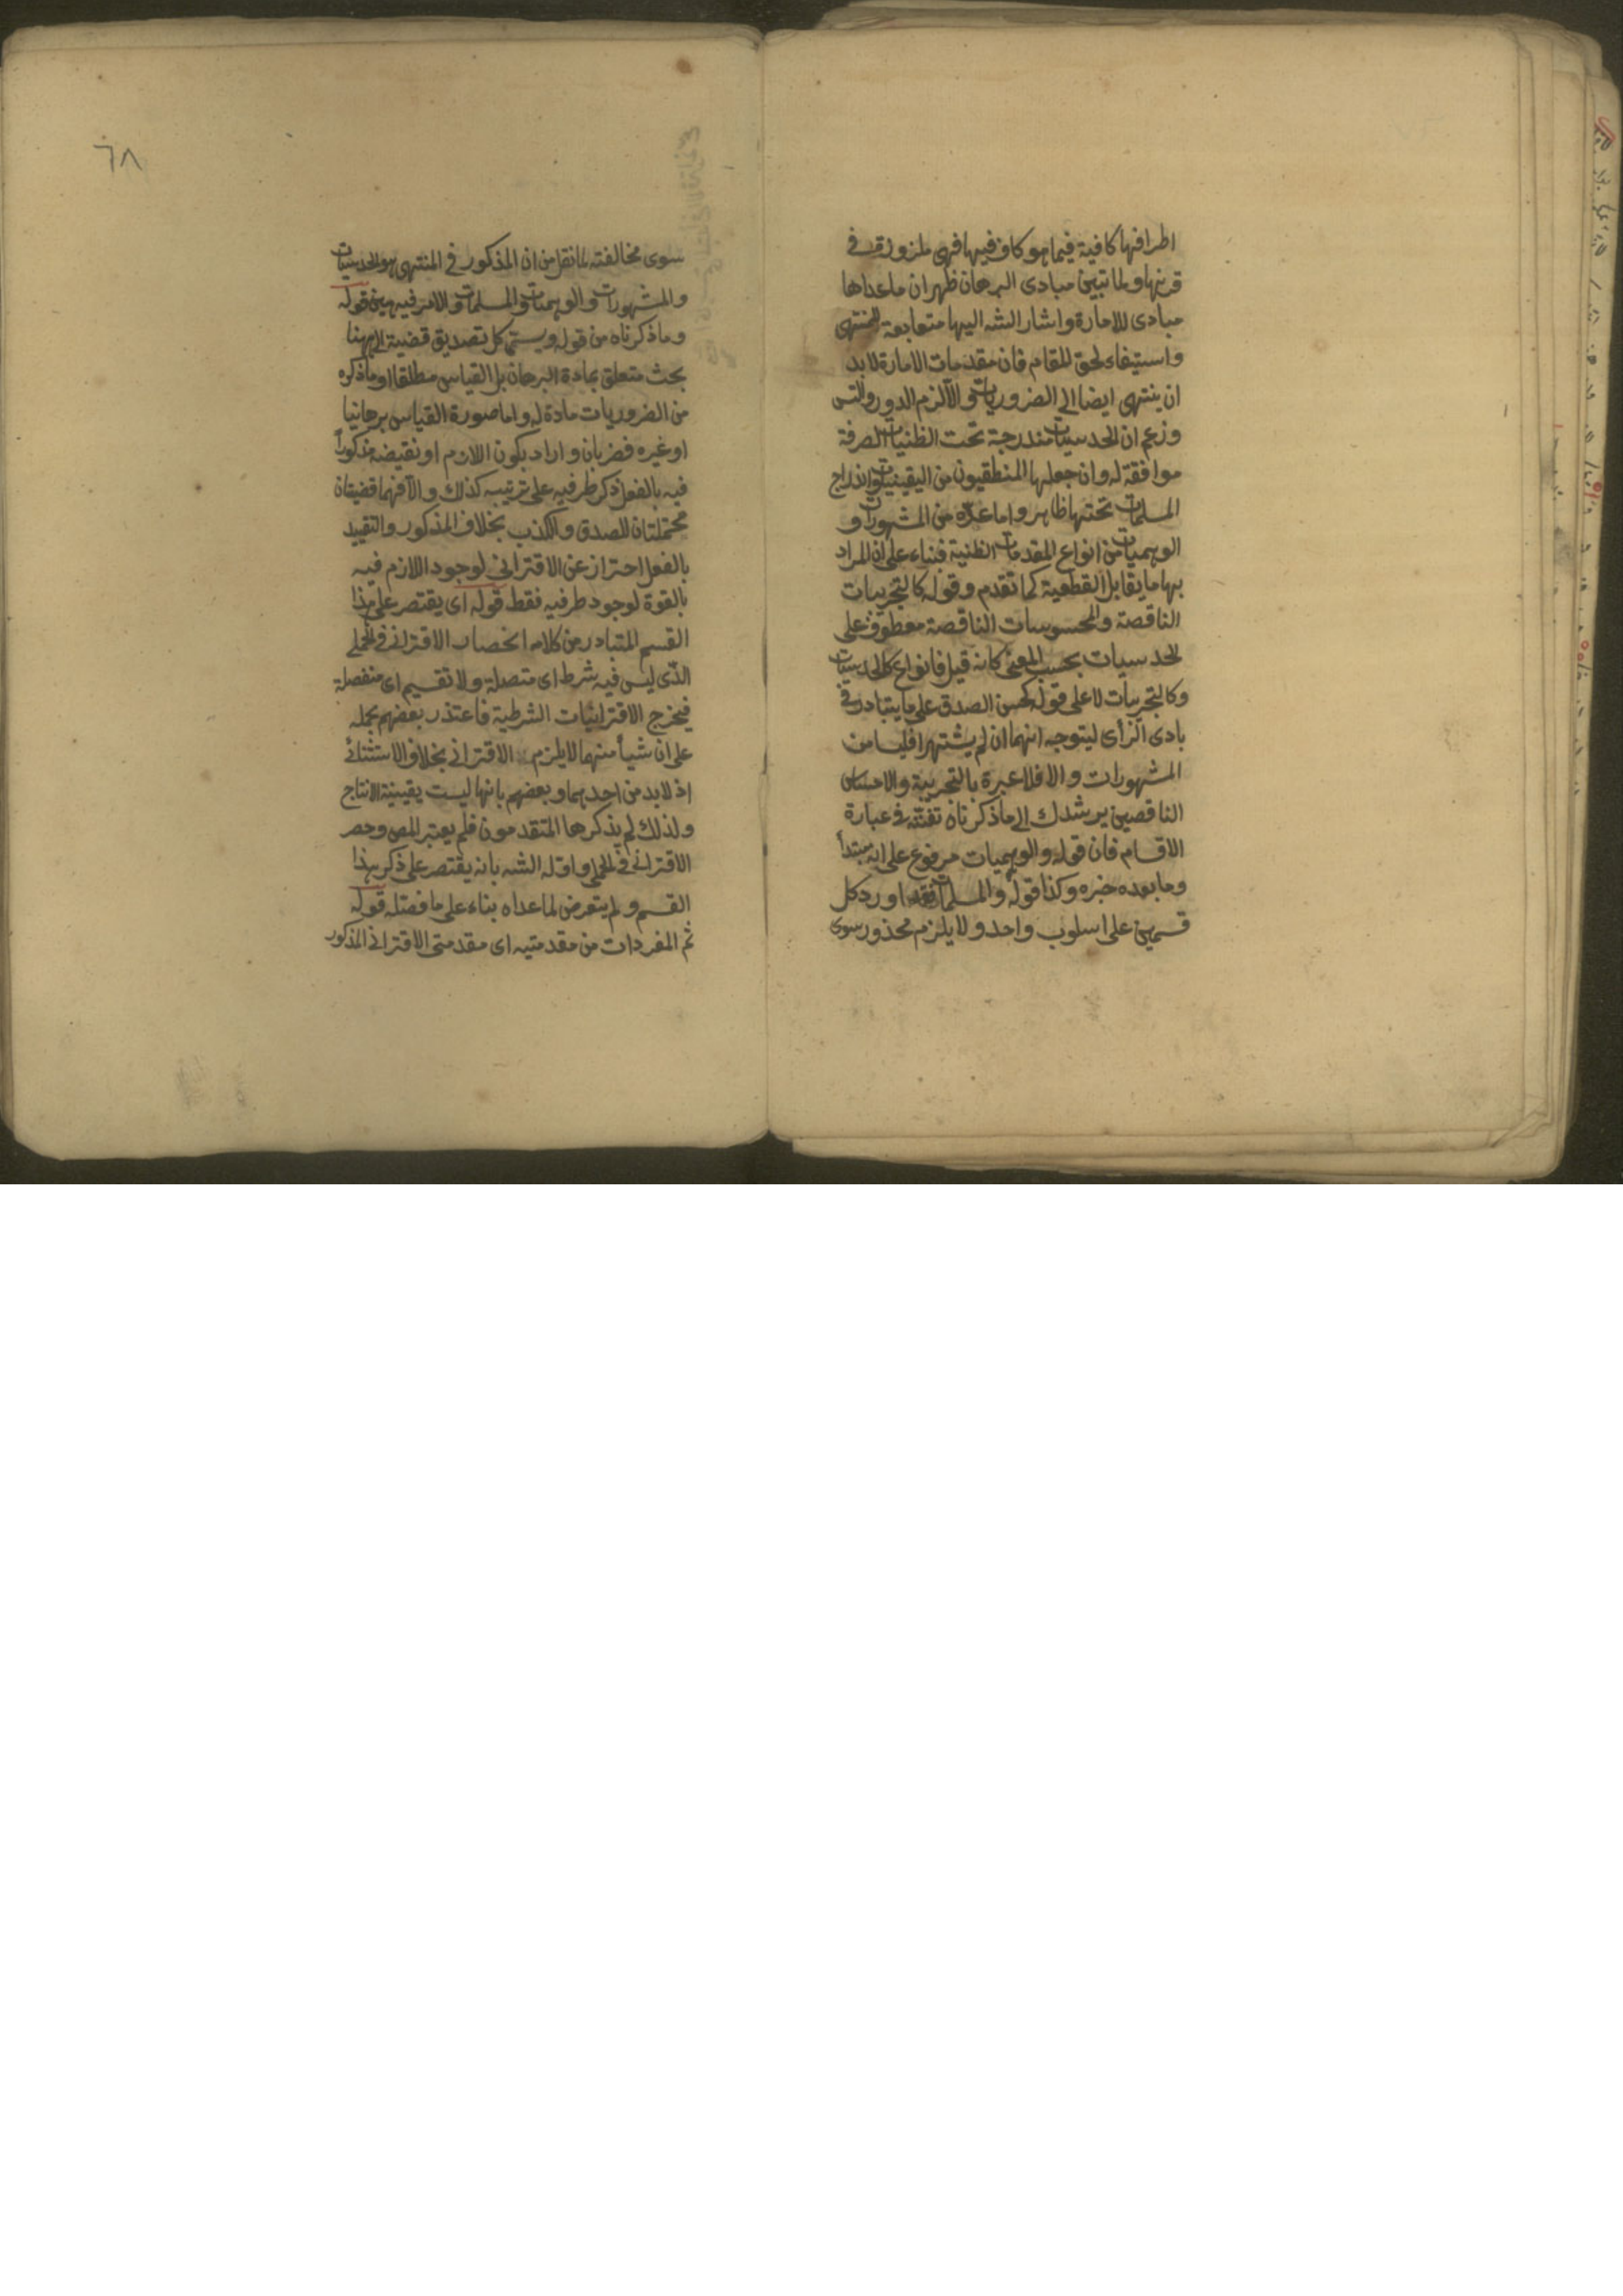 اطرافها كافية فيما هو كاف فيها فهى ملزوزة فى
قرنها ولما تبين مبادى البرهان ظهر ان ما عداها
مبادى للامارة واشار الشه اليها متعابعة للمنتهى
واستيفاء لحق المقام فان مقدمات الامارة لا بد
ان ينتهى ايضا الى الضروريات والا لزم الدور والتس
وزعم ان الحدسيات مندرجة تحت الظنيات الصرفة
موافقة له وان جعلها المنطقيون من اليقينيات واندراج
المسلمات تحتها ظاهر واما عدّه من المشهورات و
الوهميات من انواع المقدمات الظنية فبناء على ان المراد
بها ما يقابل القطعية كما تقدم وقوله كالتجربيات
الناقصة والمحسوسات الناقصة معطوف على
الحدسيات بحسب المعنى كانه قيل فانواع كالحدسيات
وكالتجربيات لا على قوله كحسن الصدق على ما يتبادر فى
بادى الرأى ليتوجه انهما ان لم يشتهرا فليسا من
المشهورات والا فلا عبرة بالتجربة والاحساس
الناقصين يرشدك الى ما ذكرناه تفننه فى عبارة
الاقسام فان قوله والوهميات مرفوع على انه مبتدأ
وما بعده خبره وكذا قوله والمسلمات فقد اورد كل
قسمين على اسلوب واحد ولا يلزم محذور سوى
٦٨
سوى مخالفته لما نقل من ان المذكور فى المنتهى هو الحدسيات
والمشهورات والوهميات والمسلمات والامر فيه هين قوله
وما ذكرناه من قوله ويسمى كل تصديق قضية الى ههنا
بحث متعلق بمادة البرهان بل القياس مطلقا او ما ذكره
من الضروريات مادة له واما صورة القياس برهانيا
او غيره فضربان واراد بكون اللازم او نقيضه مذكوراً
فيه بالفعل ذكر طرفيه على ترتيبه كذلك والا فهما قضيتان
محتملتان للصدق والكذب بخلاف المذكور والتقييد
بالفعل احتراز عن الاقترانى لوجود اللازم فيه
بالقوة لوجود طرفيه فقط قوله اى يقتصر على هذا
القسم المتبادر من كلامه انحصار الاقترانى فى الحملى
الذى ليس فيه شرط اى متصلة ولا تقسيم اى منفصلة
فيخرج الاقترانيات الشرطية فاعتذر بعضهم بحمله
على ان شيأ منهما لا يلزم الاقترانى بخلاف الاستثنائى
اذ لا بد من احدهما وبعضهم بانها ليست يقينية الانتاج
ولذلك لم يذكرها المتقدمون فلم يعتبر المص وحصر
الاقترانى فى الحملى واوّله الشه بانه يقتصر على ذكر هذا
القسم ولم يتعرض لما عداه بناء على ما فصّله قوله
ثم المفردات من مقدمتيه اى مقدمتى الاقترانى المذكور